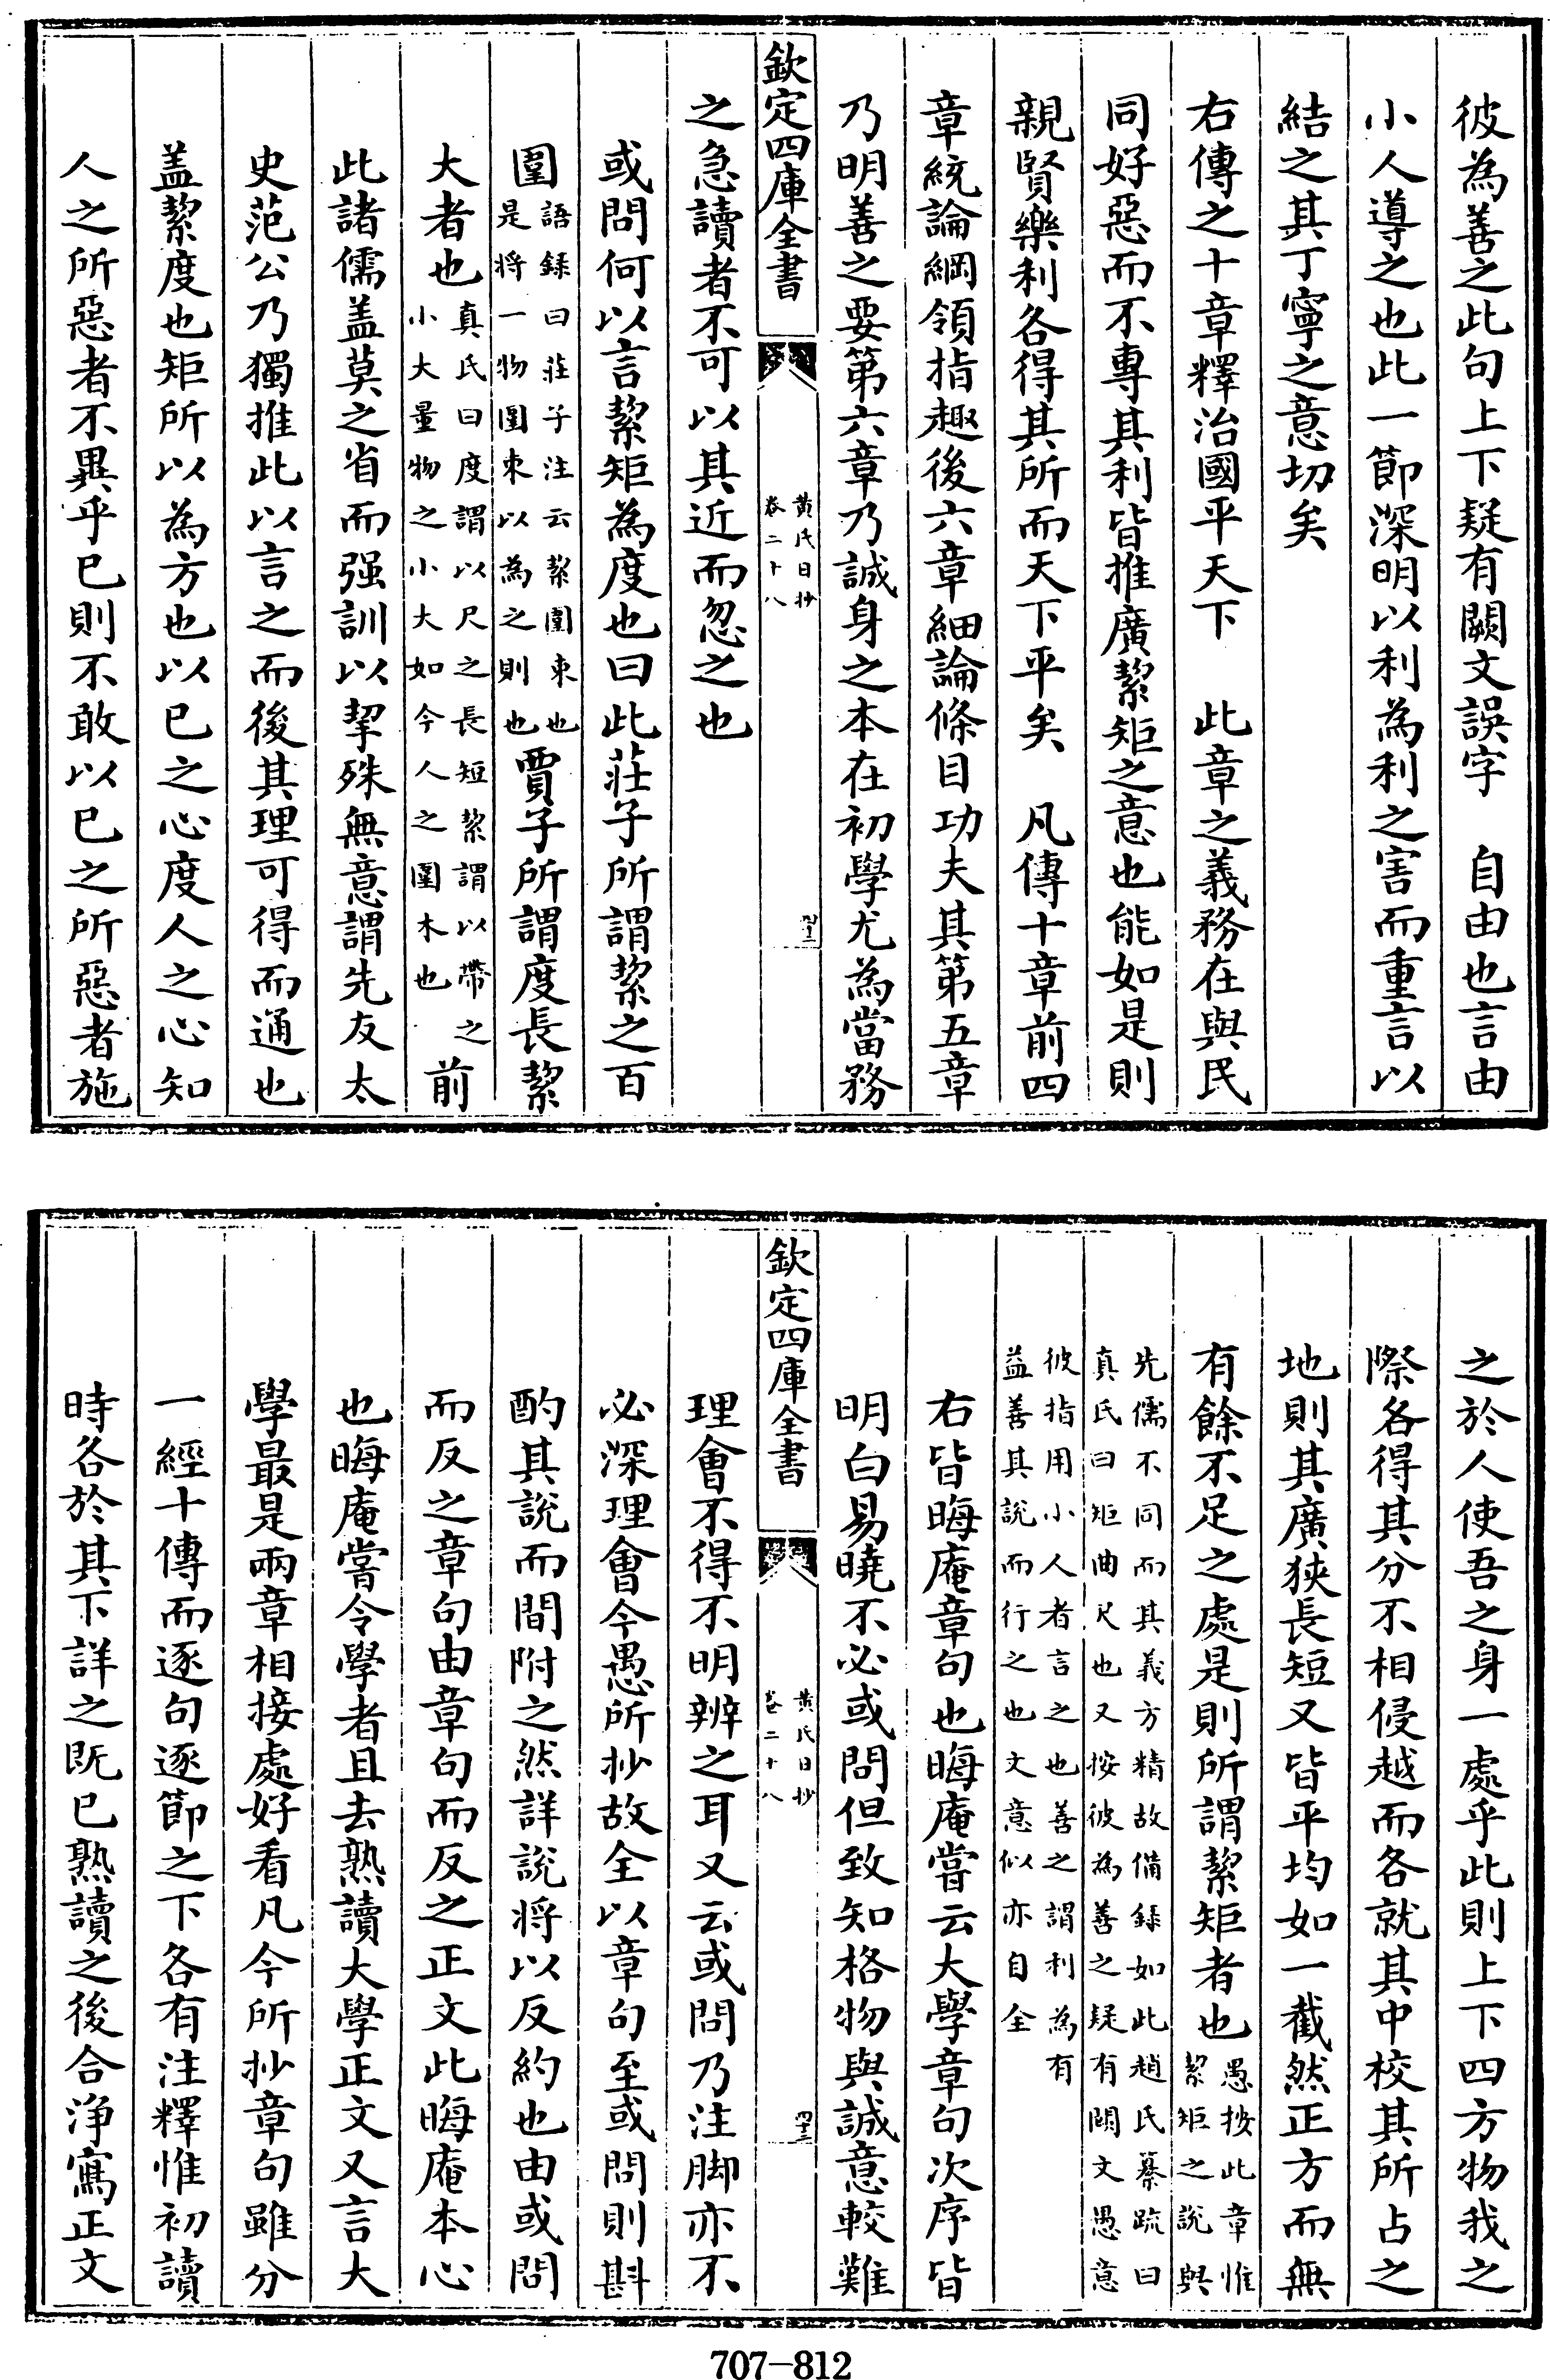 彼為善之此句上下疑有闕文誤字　自由也言由
小人導之也此一節深明以利為利之害而重言以
結之其丁寧之意切矣
右傳之十章釋治國平天下　此章之義務在與民
同好惡而不專其利皆推廣絜矩之意也能如是則
親賢樂利各得其所而天下平矣　凡傳十章前四
章統論綱領指趣後六章細論條目功夫其第五章
乃明善之要第六章乃誠身之本在初學尤為當務
欽定四庫全書
黃氏日抄
卷二十八
四十二
之急讀者不可以其近而忽之也
或問何以言絜矩為度也曰此莊子所謂絜之百
圍語錄曰莊子注云絜圍束也是將一物圍束以為之則也賈子所謂度長絜
大者也真氏曰度謂以尺之長短絜謂以帶之小大量物之小大如今人之圍木也前
此諸儒盖莫之省而强訓以挈殊無意謂先友太
史范公乃獨推此以言之而後其理可得而通也
盖絜度也矩所以為方也以已之心度人之心知
人之所惡者不異乎已則不敢以已之所惡者施
之於人使吾之身一處乎此則上下四方物我之
際各得其分不相侵越而各就其中校其所占之
地則其廣狹長短又皆平均如一截然正方而無
有餘不足之處是則所謂絜矩者也愚按此章惟絜矩之說與
先儒不同而其義方精故備録如此趙氏纂疏曰
真氏曰矩曲尺也又按彼為善之疑有闕文愚意
彼指用小人者言之也善之謂利為有
益善其說而行之也文意似亦自全
右皆晦庵章句也晦庵嘗云大學章句次序皆
明白易曉不必或問但致知格物與誠意較難
欽定四庫全書
黃氏日抄
卷二十八
四十三
理會不得不明辨之耳又云或問乃注脚亦不
必深理會今愚所抄故全以章句至或問則斟
酌其說而間附之然詳說將以反約也由或問
而反之章句由章句而反之正文此晦庵本心
也晦庵嘗令學者且去熟讀大學正文又言大
學最是兩章相接處好看凡今所抄章句雖分
一經十傳而逐句逐節之下各有注釋惟初讀
時各於其下詳之既已熟讀之後合淨寫正文
707-812